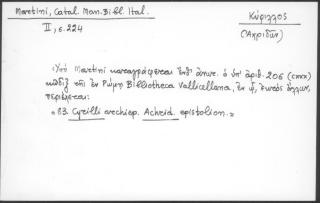 Martini, Catal. Man. Bibl. Ital.
II, σ. 224
Κύριλλος
(Ἀχριδῶν)
Ὑπὸ Martini καταγράφεται ἐνθ' ἀνωτ. ὁ ὑπ' ἀριθ. 206 (CXXX)
κῶδιξ τῆς ἐν Ῥώμῃ Bibliotheca Vallicellana, ἐν ᾧ, ἐκτὸς ἄλλων,
περιέχεται:
« 83. Cyrilli archiep. Achrid. epistolion. »